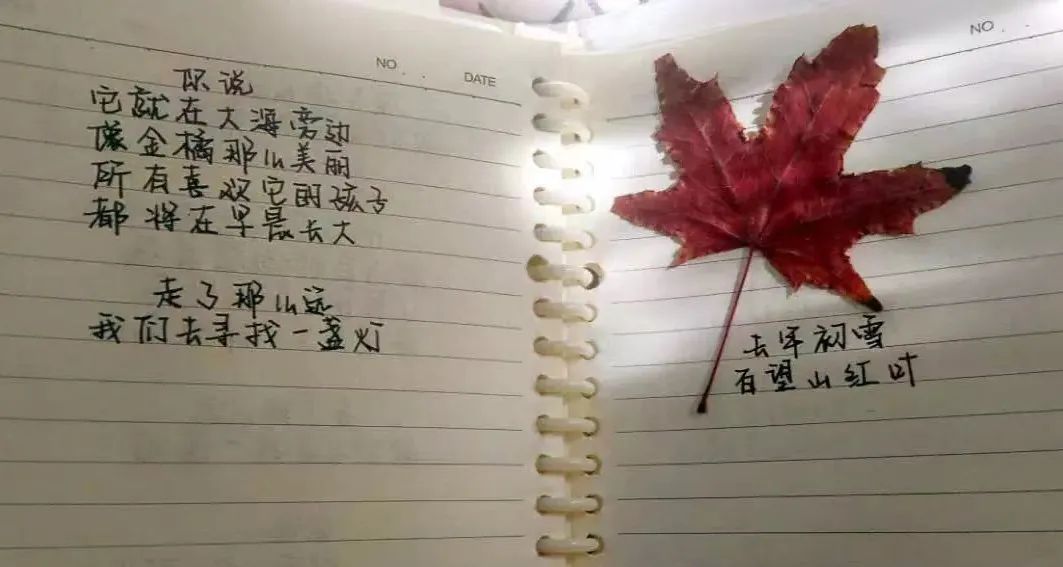 NO.
DATE
你说
它就在大海旁边
像金橘那么美丽
所有喜欢它的孩子
都将在早晨长大
走了那么远
我们去寻找一盏灯
NO.
去年初雪
百望山红叶